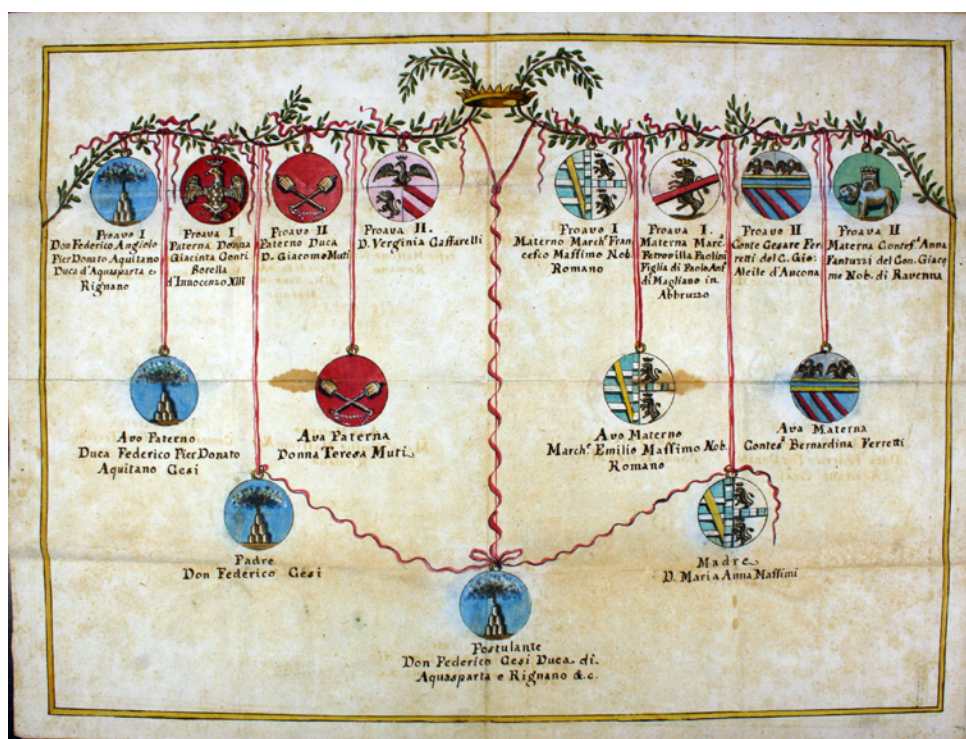 Proavo I
Don Federico Angiolo
Pier Donato Aquitano
Duca d'Aquasparta e
Rignano
Proava I
Paterna Donna
Giacinta Conti
Sorella
d'Innocenzo XIII
Proavo II
Paterno Duca
D. Giacomo Muti
Proava II.
D. Verginia Gaffarelli
Proavo I
Materno March.e Fran
cesco Massimo Nob.
Romano
Proava I.
Materna Marc.a
Petrovilla Paolini
Figlia di Paolo Ant
di Magliano in
Abbruzzo
Proavo II
Conte Gesare Fer
retti del C. Gio:
Alcile d'Ancona
Proava II
Materna Contes.a Anna
Fantuzzi del Con. Giaco
mo Nob. di Ravenna
Avo Paterno
Duca Federico Pier Donato
Aquitano Cesi
Ava Paterna
Donna Teresa Muti
Avo Materno
March.e Emilio Massimo Nob.
Romano
Ava Materna
Contes.a Bernardina Ferretti
Padre
Don Federico Cesi
Madre
D. Maria Anna Massimi
Postulante
Don Federico Cesi Duca di
Aquasparta e Rignano &.c.